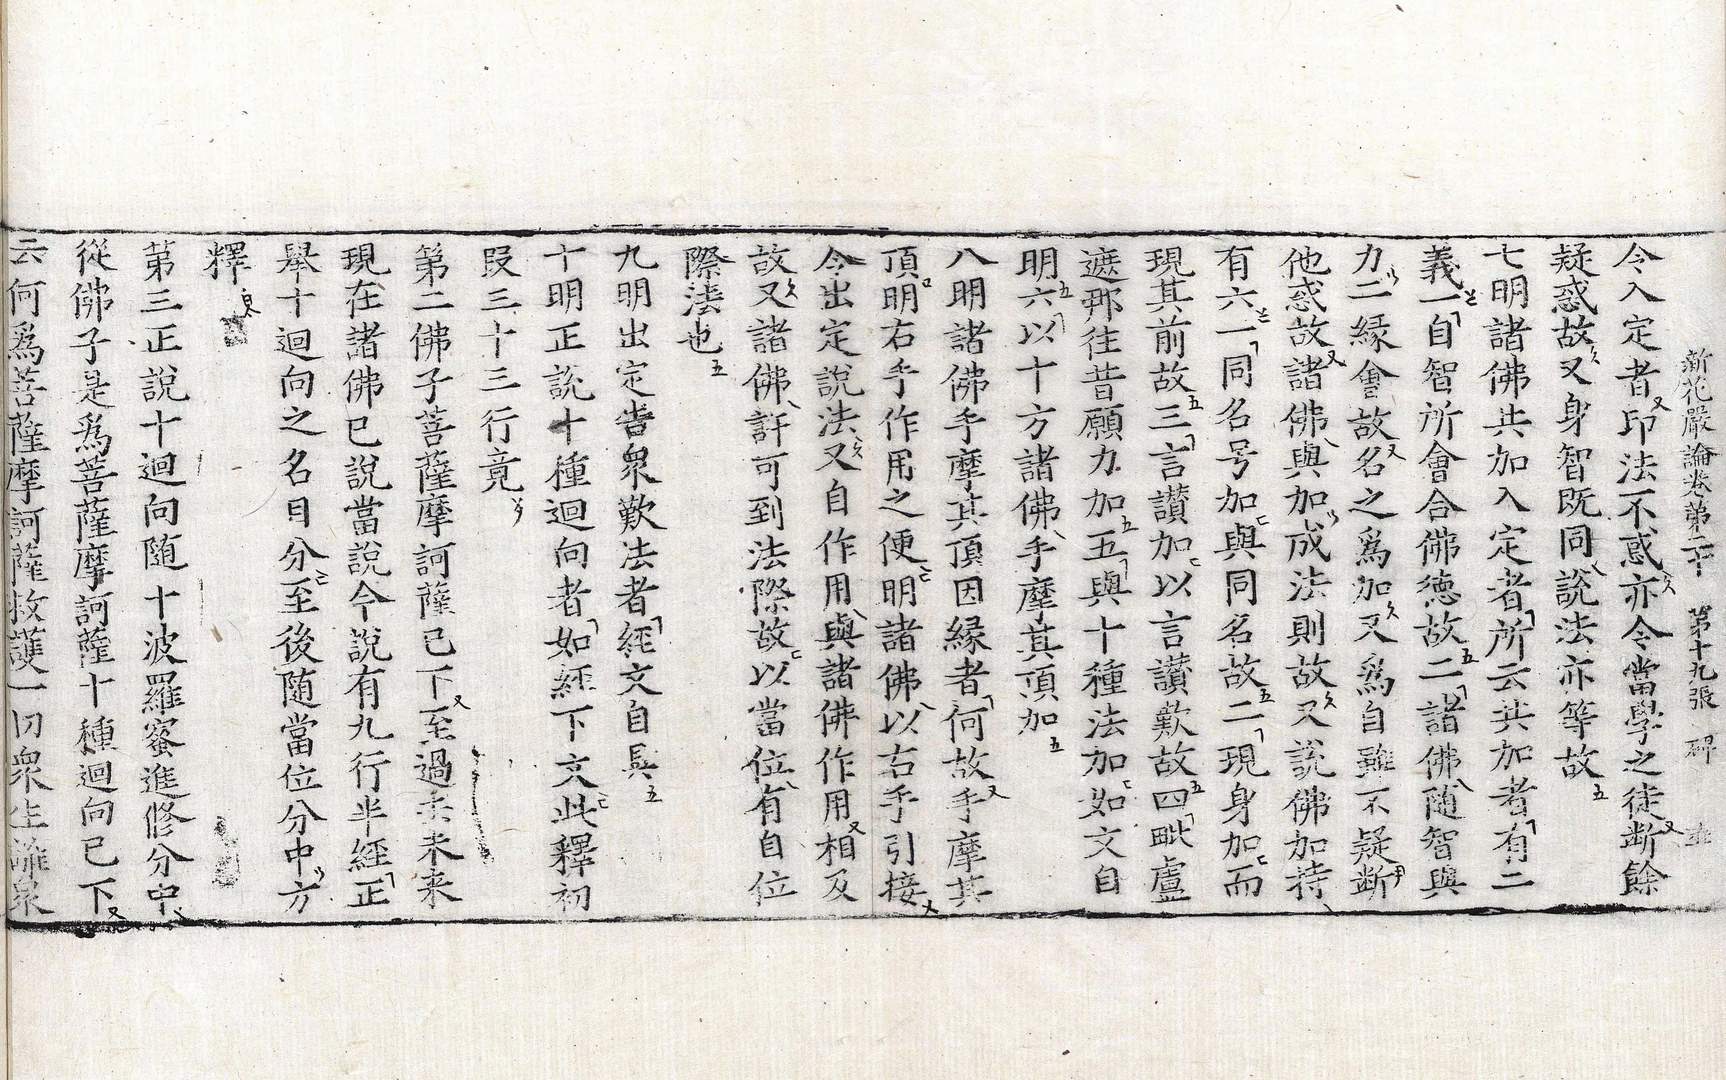 新花嚴論卷第二十 第十九張 碑
今入定者印法不惑亦令當學之徒斷餘
疑惑故又身智旣同說法亦等故
七明諸佛共加入定者所云共加者有二
義一自智所會合佛德故二諸佛隨智與
力二緣會故名之爲加又爲自雖不疑斷
他惑故諸佛與加成法則故又說佛加持
有六一同名号加與同名故二現身加而
現其前故三言讚加以言讚歎故四毗盧
遮那往昔願力加五與十種法加如文自
明六以十方諸佛手摩其頂加
八明諸佛手摩其頂因緣者何故手摩其
頂明右手作用之便明諸佛以右手引接
令出定說法又自作用與諸佛作用相及
故又諸佛許可到法際故以當位有自位
際法也
九明出定告衆歎法者經文自具
十明正說十種迴向者如經下文此釋初
段三十三行竟
第二佛子菩薩摩訶薩已下至過去未来
現在諸佛已說當說今說有九行半經正
舉十迴向之名目分至後随當位分中方
釋
第三正說十迴向随十波羅蜜進修分中
從佛子是爲菩薩摩訶薩十種迴向已下
云何爲菩薩摩訶薩救護一切衆生離衆